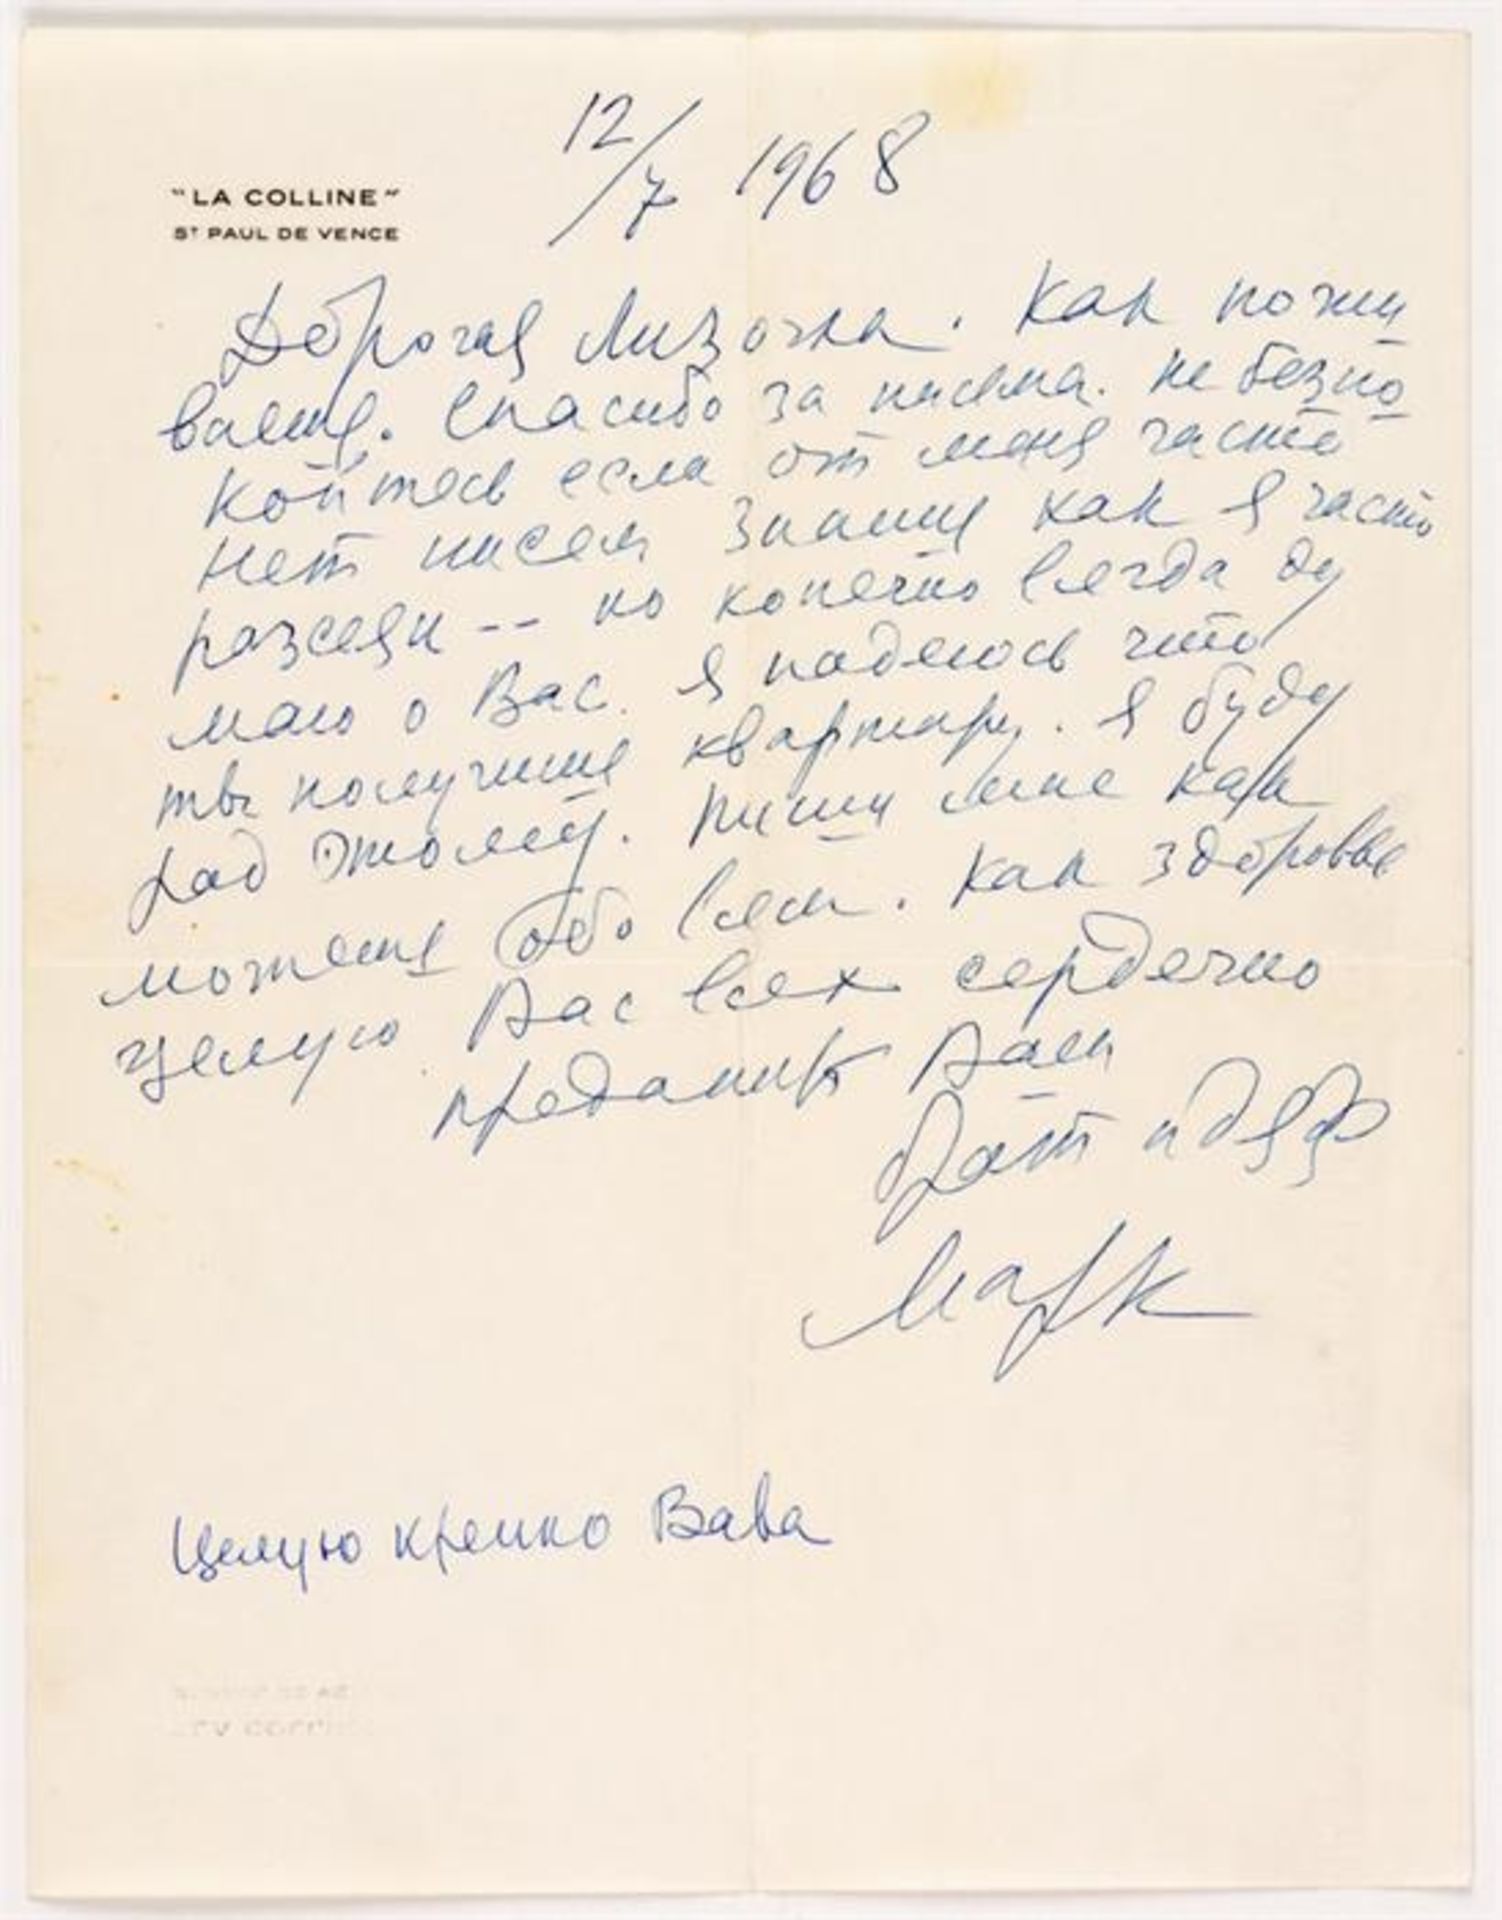 12/7 1968
"LA COLLINE"
ST PAUL DE VENCE
Дорогая Лизочка. Как пожи
ваешь. Спасибо за письма. не безпо
койтесь если от меня часто
нет писем знаешь как я часто
разсеян -- но конечно всегда ду
маю о Вас. Я надеюсь что
ты получишь квартиру. Я буду
рад этому. пиши мне как
можешь обо всем. Как здоровье
целую Вас всех сердечно
преданный Вам
брат и дядя
Марк
Целую крепко Вава